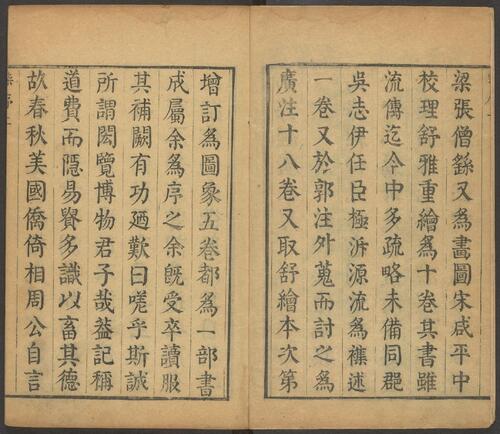 梁張僧繇又爲畫圖宋咸平中
校理舒雅重繪爲十卷其書雖
流傳迄今中多疏略未備同郡
吳志伊任臣極泝源流爲襍述
一卷又於郭注外蒐而討之爲
廣注十八卷又取舒繪本次第
增訂爲圖象五卷都爲一部書
成屬余爲序之余旣受卒讀服
其補闕有功廼歎曰嗟乎斯誠
所謂閎覽博物君子哉葢記稱
道費而隱易贊多識以畜其德
故春秋美國僑倚相周公自言